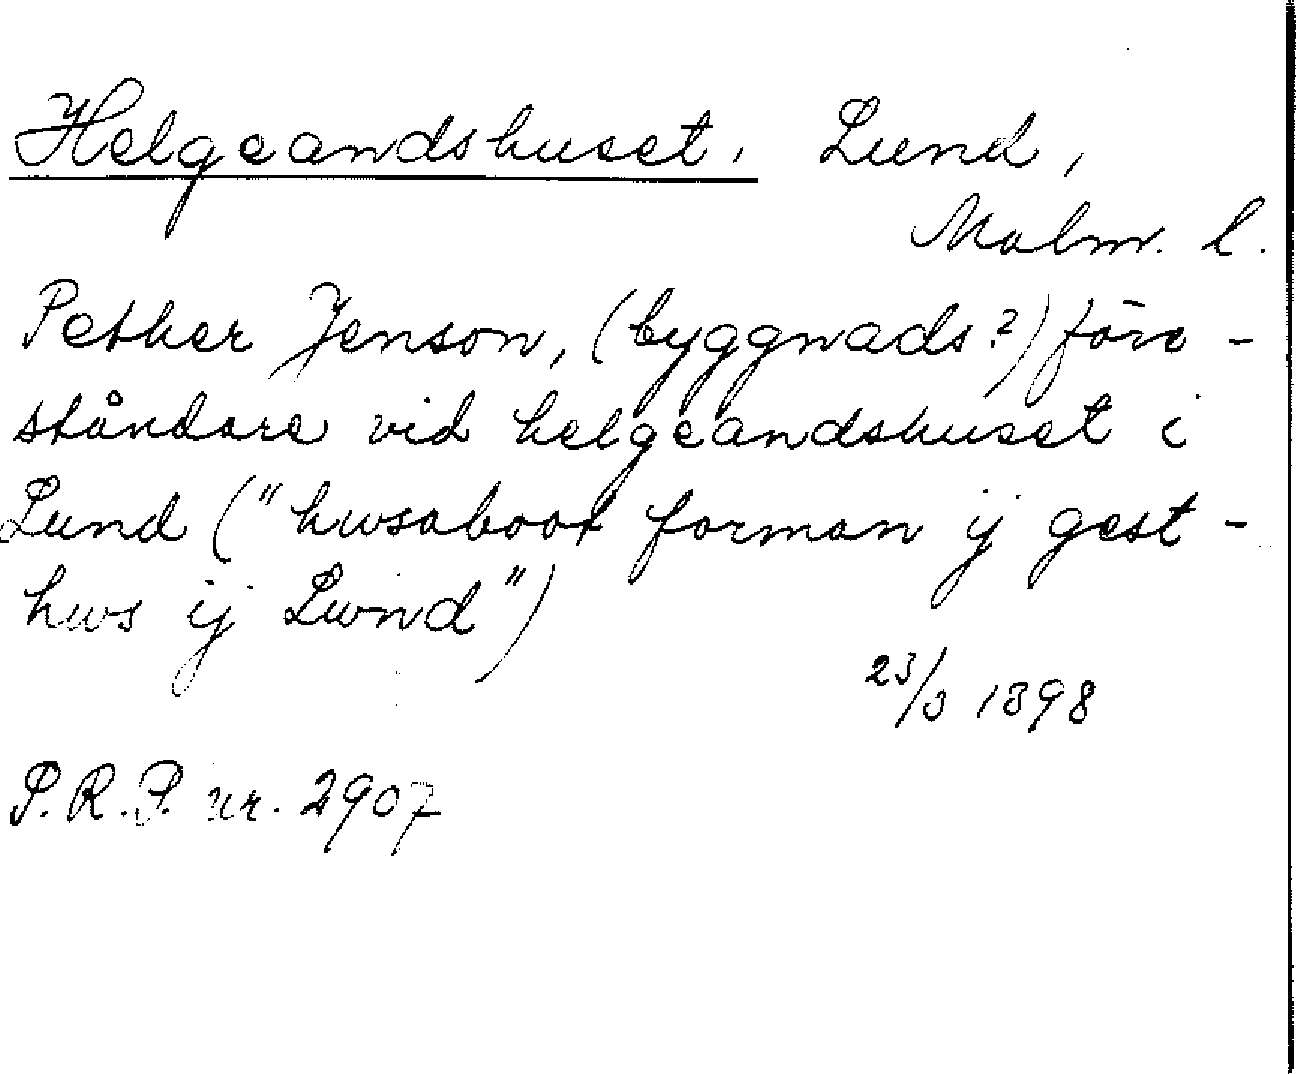 Helgeandshuset. Lund,
Malm. l.
Pether Jenson, (byggnads?) före-
ståndare vid helgeandshuset i
Lund ("hwsaboot forman ij gest-
hws ij Lwnd")
23/3 1398
P.R.P. nr. 2907